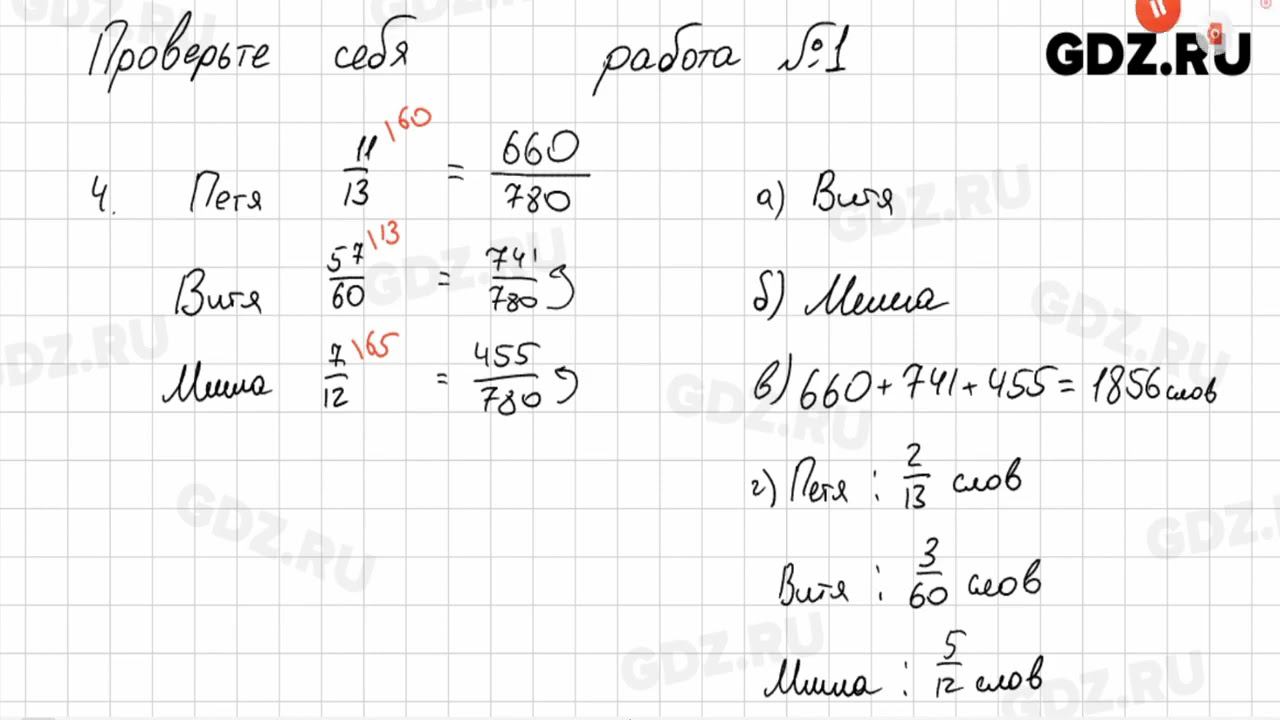 Проверьте себя работа №1
GDZ.RU
4. Петя 11/13 \60 = 660/780
Витя 57/60 \13 = 741/780
Миша 7/12 \65 = 455/780
а) Витя
б) Миша
в) 660 + 741 + 455 = 1856 слов
г) Петя : 2/13 слов
Витя : 3/60 слов
Миша : 5/12 слов